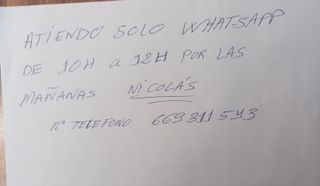 ATIENDO SOLO WHATSAPP
DE 10H a 12H POR LAS
MAÑANAS NICOLÁS
nº TELEFONO 669311543